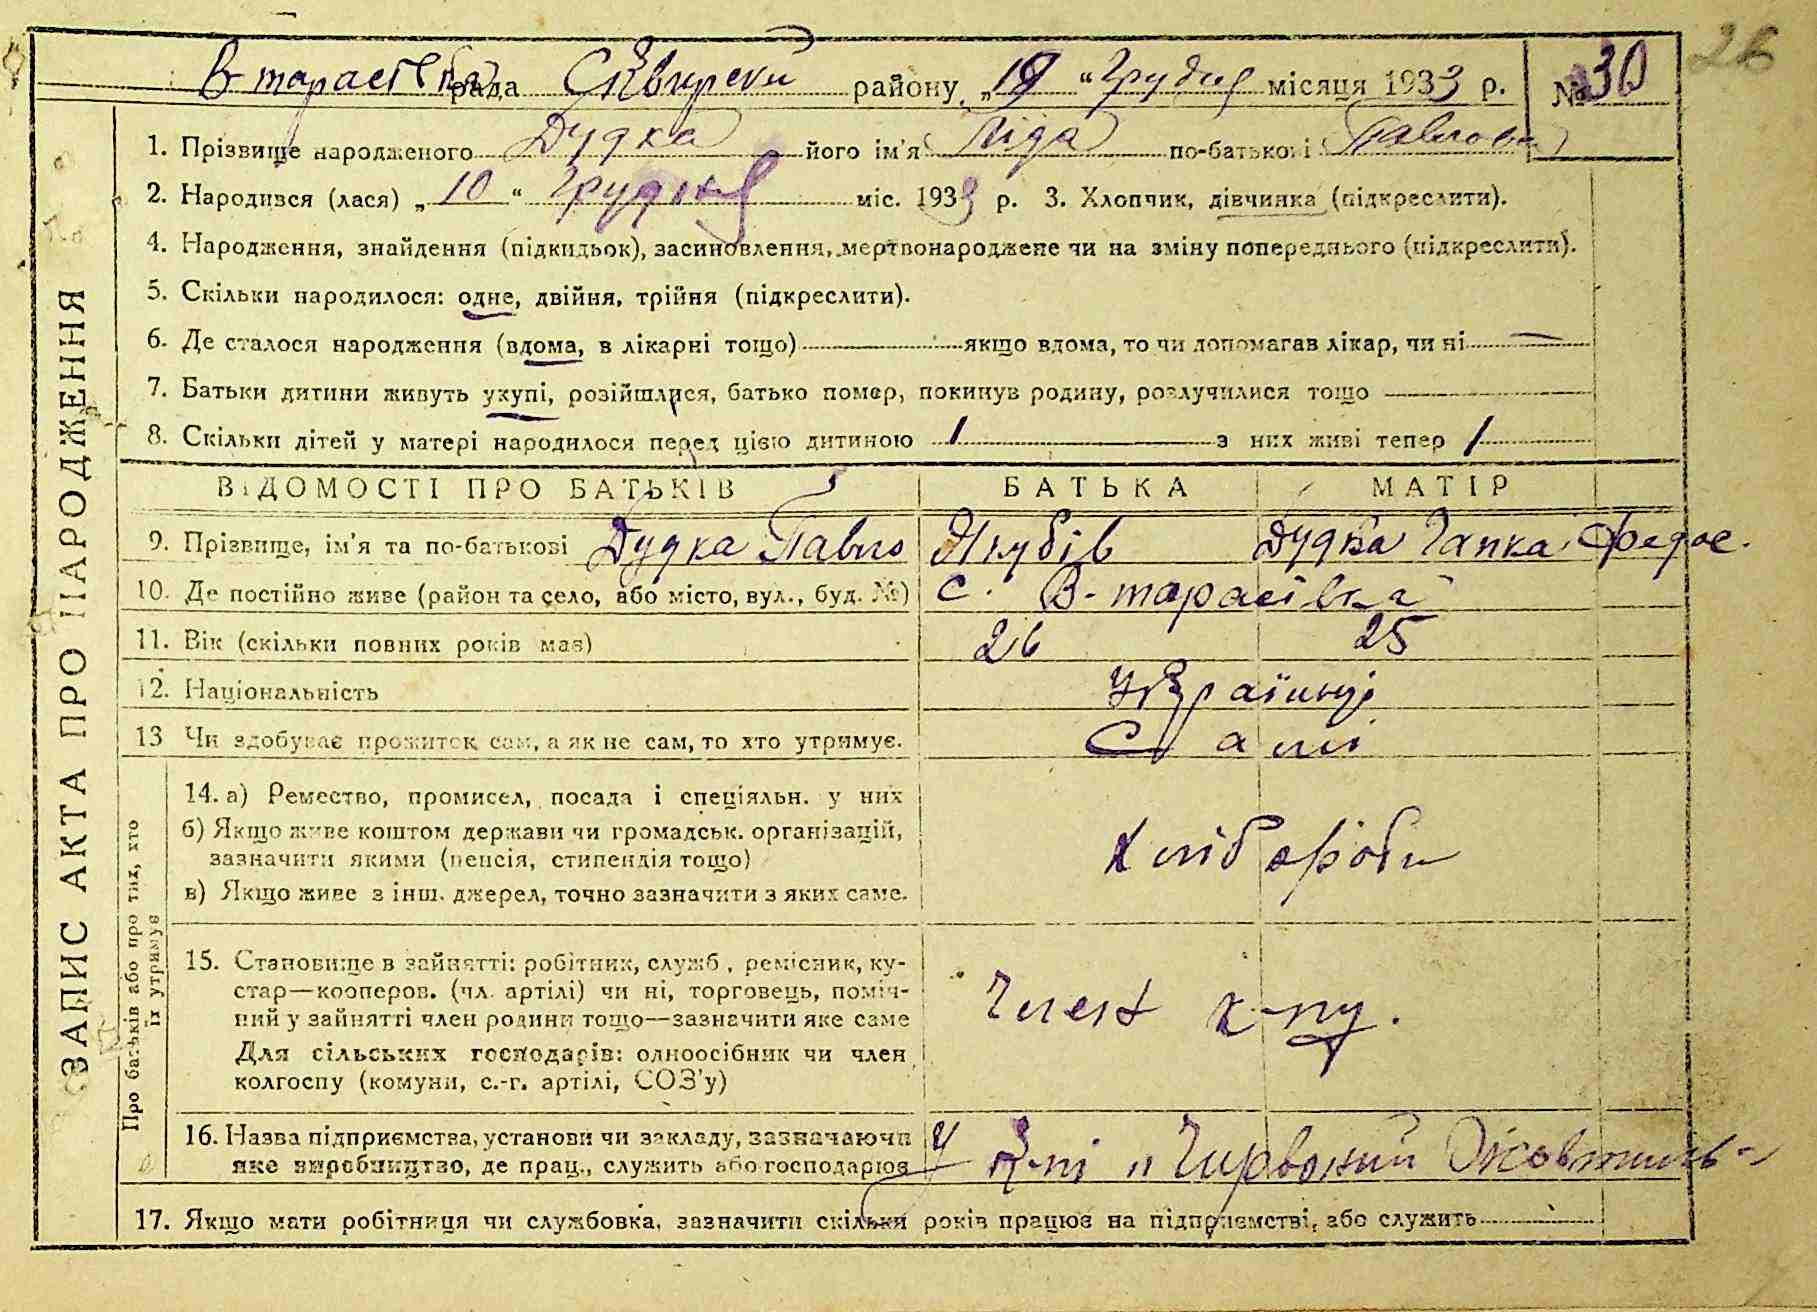 26
В-тарасівска рада Сквирськи району „19“ Грудня місяця 1933 р. № 30
1. Прізвище народженого Дудка його ім'я Ліда по-батькові Павлова
2. Народився (лася) „10“ Грудня міс. 1933 р. 3. Хлопчик, дівчинка (підкреслити).
4. Народження, знайдення (підкидьок), засиновлення, мертвонароджене чи на зміну попереднього (підкреслити).
5. Скільки народилося: одне, двійня, трійня (підкреслити).
6. Де сталося народження (вдома, в лікарні тощо) якщо вдома, то чи допомагав лікар, чи ні —
7. Батьки дитини живуть укупі, розійшлися, батько помер, покинув родину, розлучилися тощо
8. Скільки дітей у матері народилося перед цією дитиною 1 з них живі тепер 1
ВІДОМОСТІ ПРО БАТЬКІВ БАТЬКА МАТІР
9. Прізвище, ім'я та по-батькові Дудка Павло Якубів Дудка Гапка Федос.
10. Де постійно живе (район та село, або місто, вул., буд. №) с. В-тарасівка
11. Вік (скільки повних років має) 26 25
12. Національність Українці
13 Чи здобуває прожиток сам, а як не сам, то хто утримує. Самі
14. а) Ремество, промисел, посада і спеціяльн. у них
б) Якщо живе коштом держави чи громадськ. організацій,
зазначити якими (пенсія, стипендія тощо)
Хліб ороби
в) Якщо живе з інш. джерел, точно зазначити з яких саме.
15. Становище в зайнятті: робітник, служб, ремісник, ку-
стар—кооперов. (чл. артілі) чи ні, торговець, поміч-
ний у зайнятті член родини тощо—зазначити яке саме
Член к-пу.
Для сільських господарів: одноосібник чи член
колгоспу (комуни, с.-г. артілі, СОЗ'у)
16. Назва підприємства, установи чи закладу, зазначаючи
яке виробництво, де прац., служить або господарює У к-пі „Чирвоний
17. Якщо мати робітниця чи службовка, зазначити скільки років працює на підприємстві, або служить
ЗАПИС АКТА ПРО НАРОДЖЕННЯ
Про батьків або про тих, хто
їх утримує